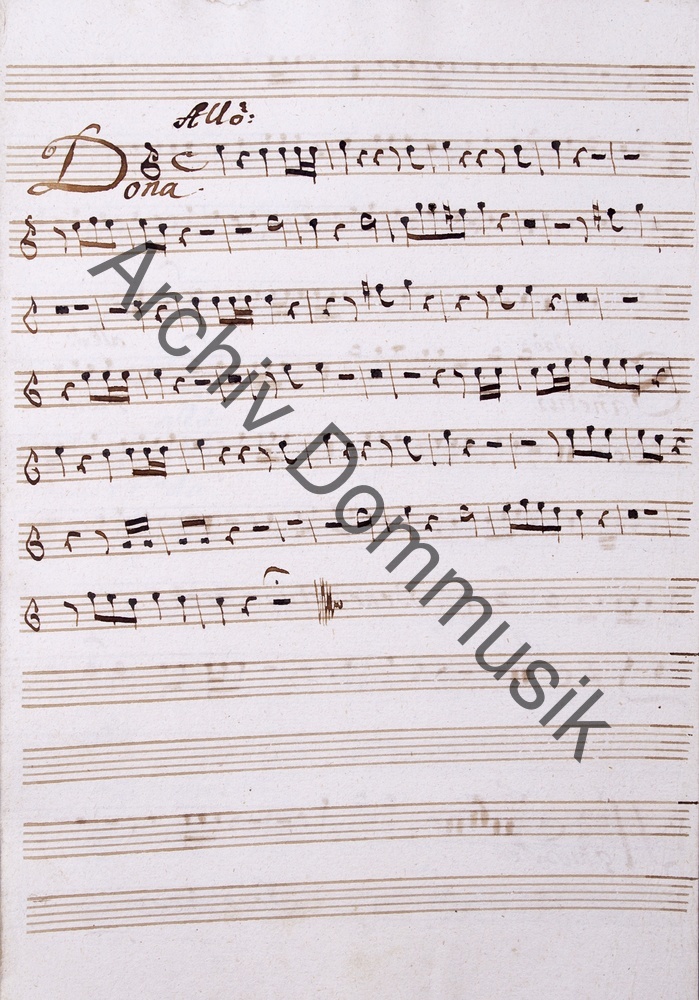 Allo:
Dona
Archiv Dommusik